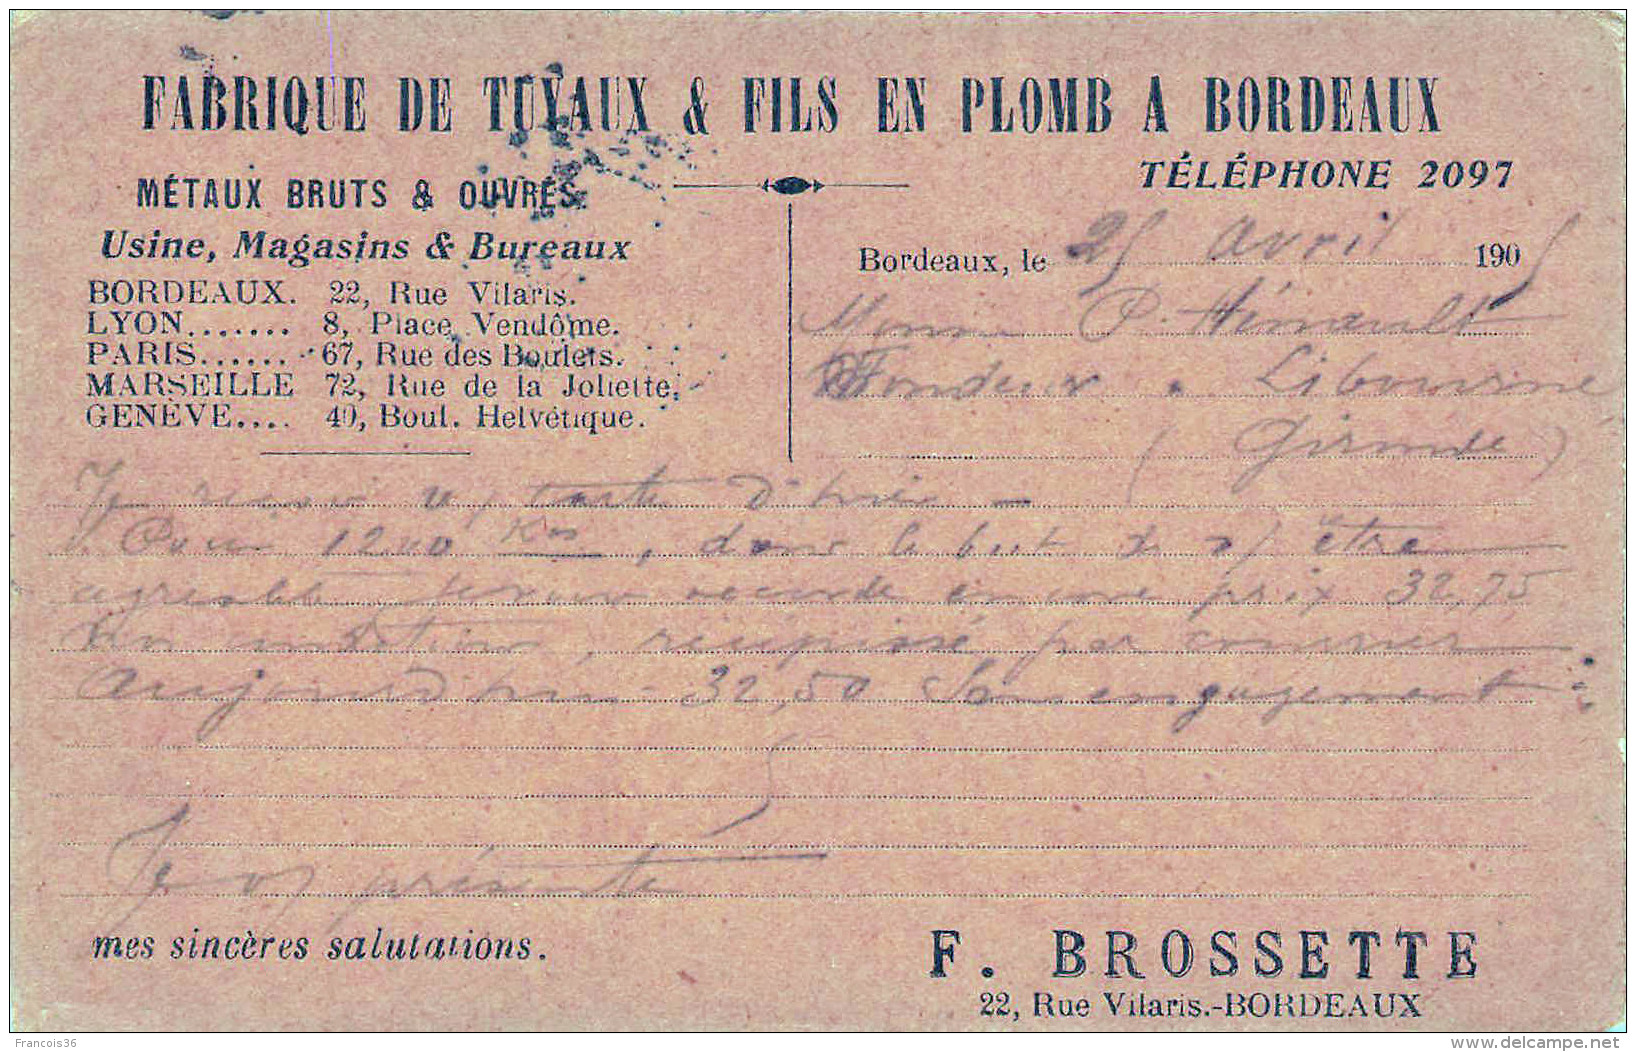 FABRIQUE DE TUYAUX & FILS EN PLOMB A BORDEAUX
TÉLÉPHONE 2097
MÉTAUX BRUTS & OUVRÉS.
Usine, Magasins & Bureaux
BORDEAUX. 22, Rue Vilaris.
LYON....... 8, Place Vendôme.
PARIS...... 67, Rue des Boulets.
MARSEILLE 72, Rue de la Joliette.
GENÈVE.... 40, Boul. Helvétique.
Bordeaux, le 25 Avril 1905
P. Hénault
Fondeur Libourne
(Gironde)
Je reçois v/ carte d'hier -
Pour 1200 Kos, dans le but de v/ être
agréable encore prix 32,75
récépissé par courrier
Aujourd'hui 32,50 Sans engagement
Je vs présente
mes sincères salutations.
F. BROSSETTE
22, Rue Vilaris.-BORDEAUX
Francois36
www.delcampe.net